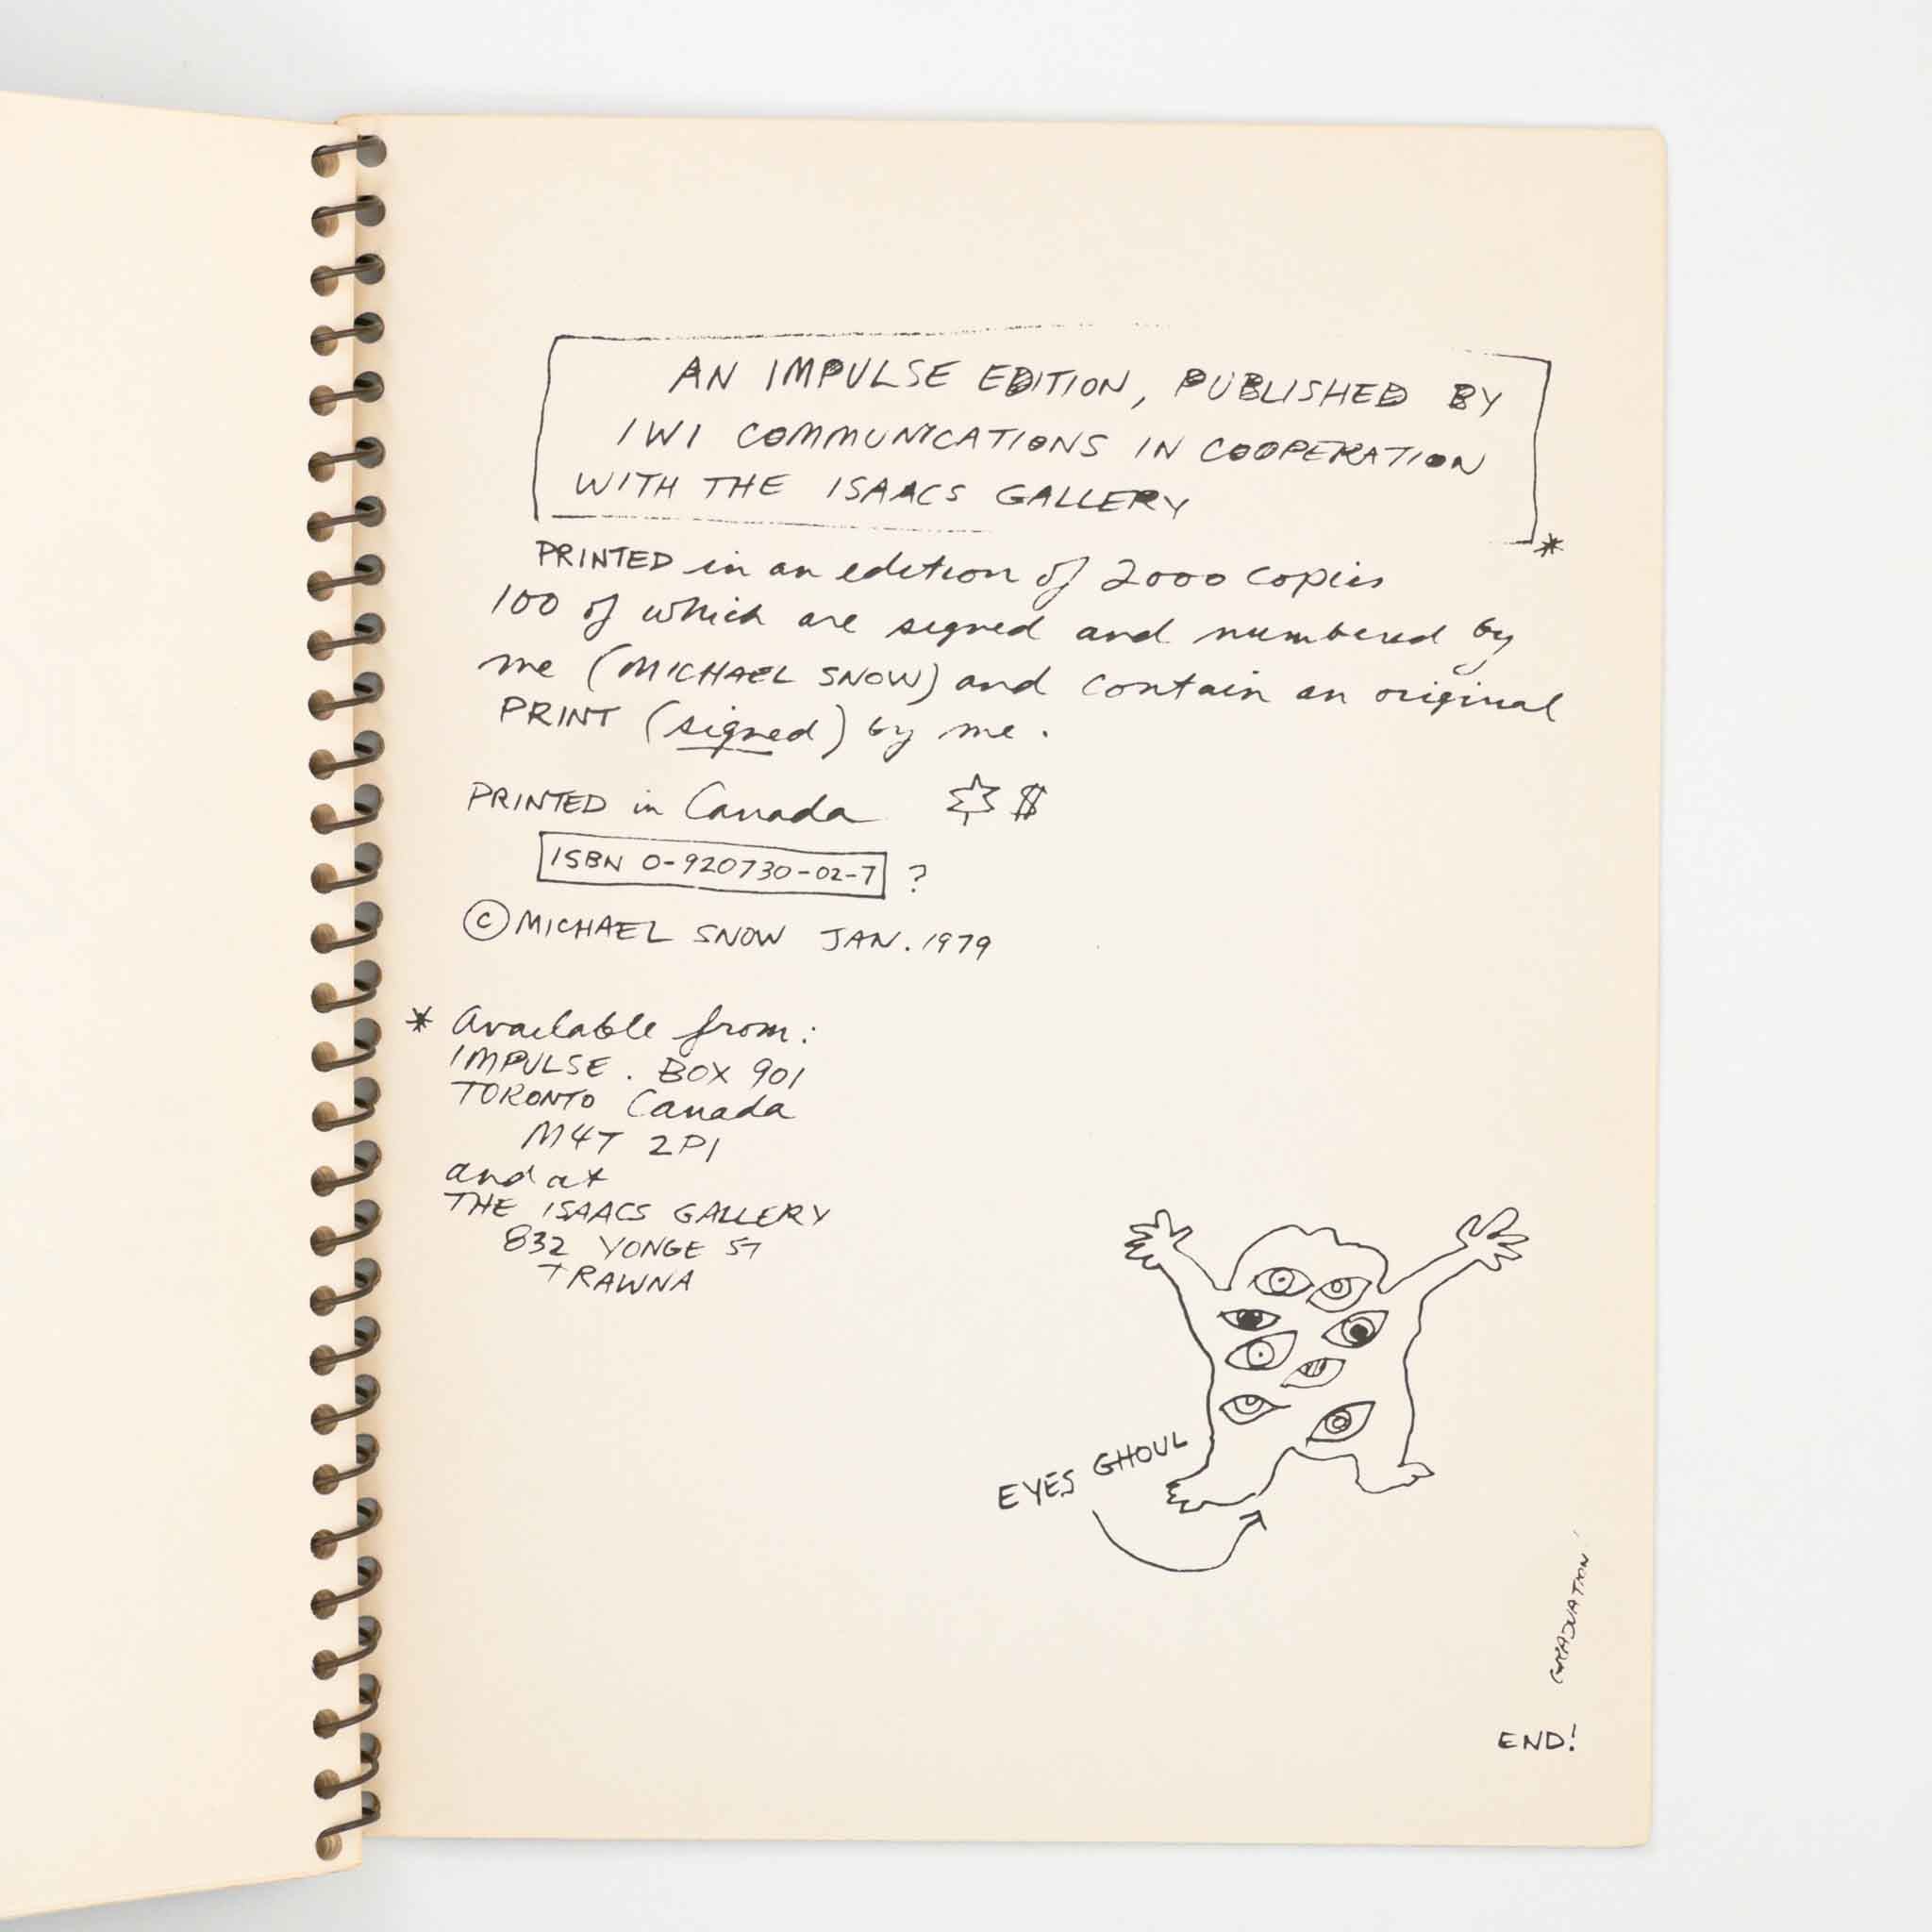 AN IMPULSE EDITION, PUBLISHED BY
IWI COMMUNICATIONS IN COOPERATION
WITH THE ISAACS GALLERY
*
PRINTED in an edition of 2000 copies
100 of which are signed and numbered by
me (MICHAEL SNOW) and contain an original
PRINT (signed) by me.
PRINTED in Canada $
ISBN 0-920730-02-7 ?
© MICHAEL SNOW JAN. 1979
* Available from:
IMPULSE. BOX 901
TORONTO Canada
M4T 2P1
and at
THE ISAACS GALLERY
832 YONGE ST
TRAWNA
EYES GHOUL
GRADUATION!
END!